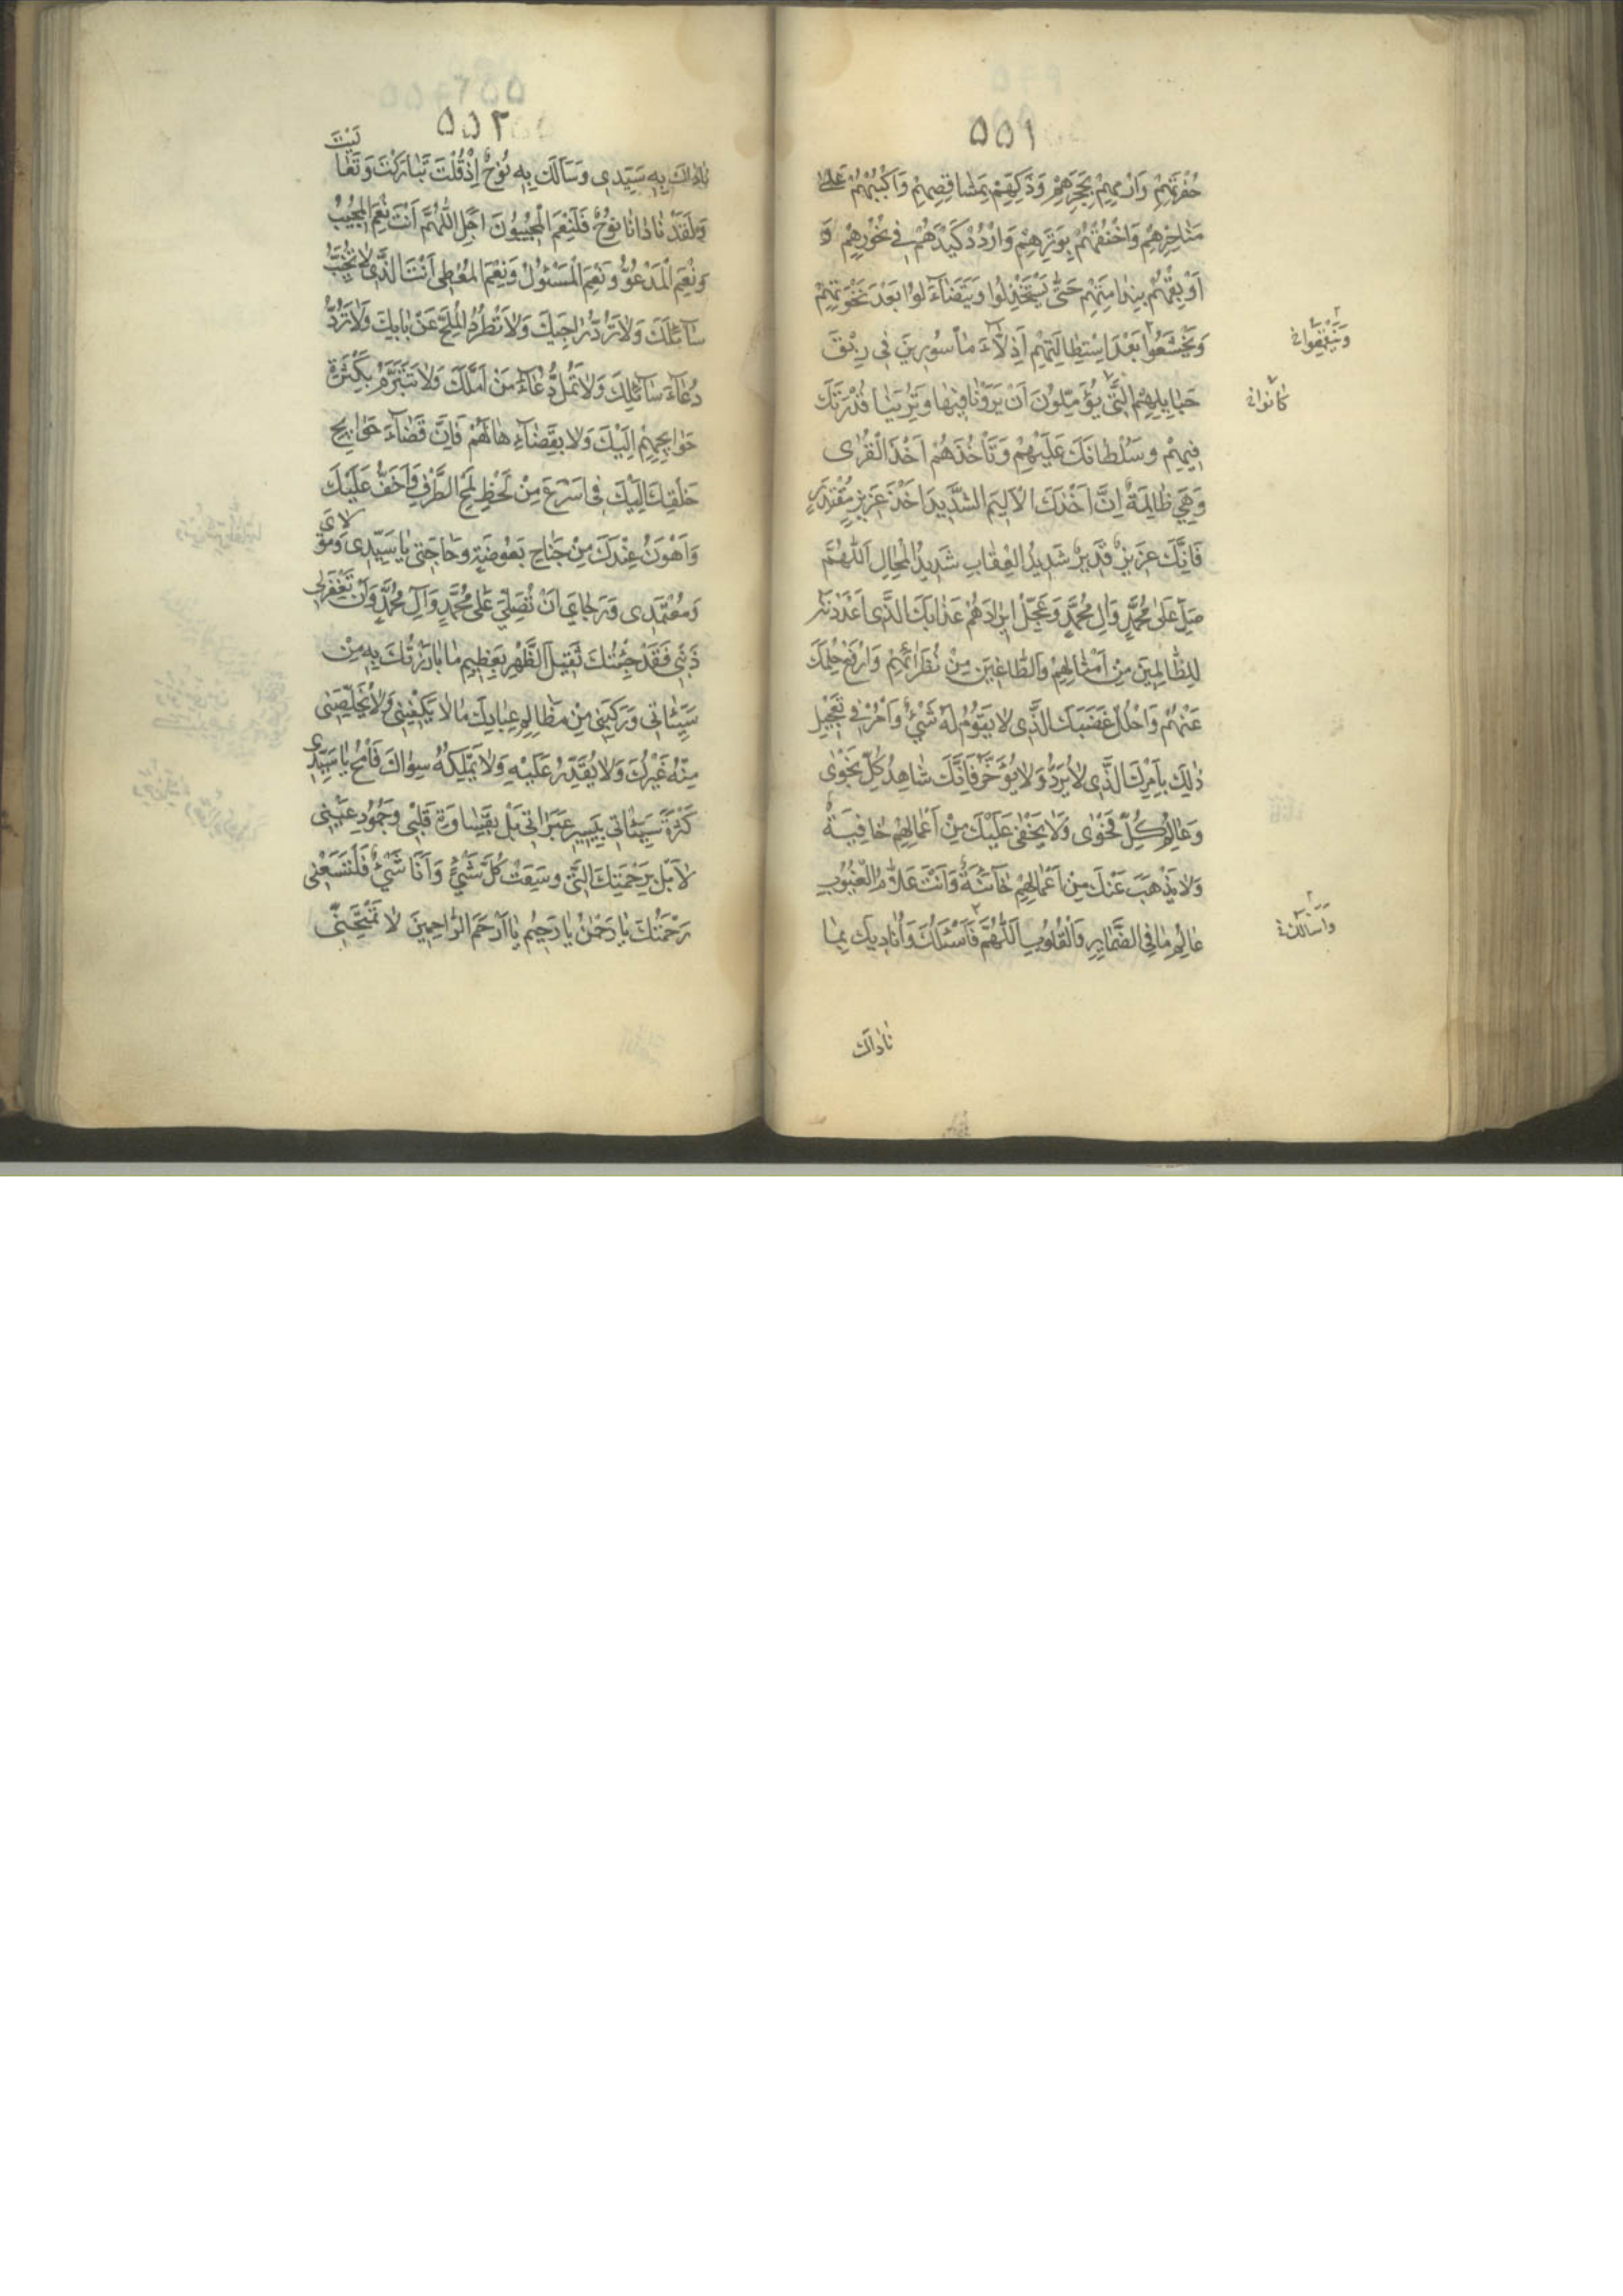 ٥٥١
حُفْرَتِهِمْ وَارْمِهِمْ بِحَجَرِهِمْ وَذَكِّهِمْ بِمَشَاقِصِهِمْ وَاكْبُبْهُمْ عَلىٰ
مَنَاخِرِهِمْ وَاخْنُقْهُمْ بِوَتَرِهِمْ وَارْدُدْ كَيْدَهُمْ فِي نُحُورِهِمْ وَ
اَوْبِقْهُمْ بِنِدَامَتِهِمْ حَتّٰى يَسْتَخْذِلُوا وَيَتَضَاۤءَلُوا بَعْدَ نَخْوَتِهِمْ
وَيَخْشَعُوا بَعْدَ اسْتِطَالَتِهِمْ اَذِلّاۤءَ مَأْسُورِينَ فِي رِبَقِ
وَيَنْقَمِعُوا
حَبَايِلِهِمُ الَّتِي يُؤَمِّلُونَ اَنْ يَرَوْنَا فِيهَا وَتُرِيَنَا قُدْرَتَكَ
كَانُوا
فِيهِمْ وَسُلْطَانَكَ عَلَيْهِمْ وَتَأْخُذَهُمْ اَخْذَ الْقُرىٰ
وَهِيَ ظَالِمَةٌ اِنَّ اَخْذَكَ الْاَلِيمُ الشَّدِيدُ اَخْذَ عَزِيزٍ مُقْتَدِرٍ
فَاِنَّكَ عَزِيزٌ قَدِيرٌ شَدِيدُ الْعِقَابِ شَدِيدُ الْمِحَالِ اَللّٰهُمَّ
صَلِّ عَلىٰ مُحَمَّدٍ وَآلِ مُحَمَّدٍ وَعَجِّلْ اِيرَادَهُمْ عَذَابَكَ الَّذِي اَعْدَدْتَهُ
لِلظَّالِمِينَ مِنْ اَمْثَالِهِمْ وَالطَّاغِينَ مِنْ نُظَرَائِهِمْ وَارْفَعْ حِلْمَكَ
عَنْهُمْ وَاحْلُلْ غَضَبَكَ الَّذِي لَا يَقُومُ لَهُ شَيْءٌ وَأْمُرْ فِي تَعْجِيلِ
ذٰلِكَ بِاَمْرِكَ الَّذِي لَا يُرَدُّ وَلَا يُؤَخَّرُ فَاِنَّكَ شَاهِدُ كُلِّ نَجْوىٰ
وَعَالِمُ كُلِّ فَحْوىٰ وَلَا يَخْفىٰ عَلَيْكَ مِنْ اَعْمَالِهِمْ خَافِيَةٌ
وَلَا يَذْهَبُ عَنْكَ مِنْ اَعْمَالِهِمْ خَاۤئِنَةٌ وَاَنْتَ عَلَّامُ الْغُيُوبِ
عَالِمُ مَا فِي الضَّمَايِرِ وَالْقُلُوبِ اَللّٰهُمَّ فَاَسْئَلُكَ وَاُنَادِيكَ بِمَا
وَاَسْأَلُكَ
نَادَاكَ
٥٥٢
نَادَاكَ بِهِ سَيِّدِي وَسَأَلَكَ بِهِ نُوحٌ اِذْ قُلْتَ تَبَارَكْتَ وَتَعَالَيْتَ
وَلَقَدْ نَادَانَا نُوحٌ فَلَنِعْمَ الْمُجِيبُونَ اَجَلِ اللّٰهُمَّ اَنْتَ نِعْمَ الْمُجِيبُ
وَنِعْمَ الْمَدْعُوُّ وَنِعْمَ الْمَسْئُولُ وَنِعْمَ الْمُعْطِي اَنْتَ الَّذِي لَا تُخَيِّبُ
سَاۤئِلَكَ وَلَا تَرُدُّ رَاجِيَكَ وَلَا تَطْرُدُ الْمُلِحَّ عَنْ بَابِكَ وَلَا تَرُدُّ
دُعَاۤءَ سَاۤئِلِكَ وَلَا تَمُلُّ دُعَاۤءَ مَنْ اَمَّلَكَ وَلَا تَتَبَرَّمُ بِكَثْرَةِ
حَوَايِجِهِمْ اِلَيْكَ وَلَا بِقَضَاۤءِهَا لَهُمْ فَاِنَّ قَضَاۤءَ حَوَايِجِ
خَلْقِكَ اِلَيْكَ فِي اَسْرَعَ مِنْ لَحْظِ لَمْحِ الطَّرْفِ وَاَخَفُّ عَلَيْكَ
وَاَهْوَنُ عِنْدَكَ مِنْ جَنَاحِ بَعُوضَةٍ وَحَاجَتِي يَا سَيِّدِي وَمَوْلَايَ
وَمُعْتَمَدِي وَرَجَايَ اَنْ تُصَلِّيَ عَلىٰ مُحَمَّدٍ وَآلِ مُحَمَّدٍ وَاَنْ تَغْفِرَ لِي
ذَنْبِي فَقَدْ جِئْتُكَ ثَقِيلَ الظَّهْرِ بِعَظِيمِ مَا بَارَزْتُكَ بِهِ مِنْ
سَيِّئَاتِي وَرَكِبَنِي مِنْ مَظَالِمِ عِبَادِكَ مَا لَا يَكْفِينِي وَلَا يُخَلِّصُنِي
مِنْهُ غَيْرُكَ وَلَا يُقَدِّرُ عَلَيْهِ وَلَا يَمْلِكُهُ سِوَاكَ فَامْحُ يَا سَيِّدِي
كَثْرَةَ سَيِّئَاتِي بِيَسِيرِ عَبَرَاتِي بَلْ بِقَسَاوَةِ قَلْبِي وَجُمُودِ عَيْنِي
لَا بَلْ بِرَحْمَتِكَ الَّتِي وَسِعَتْ كُلَّ شَيْءٍ وَاَنَا شَيْءٌ فَلْتَسَعْنِي
رَحْمَتُكَ يَا رَحْمٰنُ يَا رَحِيمُ يَا اَرْحَمَ الرَّاحِمِينَ لَا تَمْتَحِنِّي